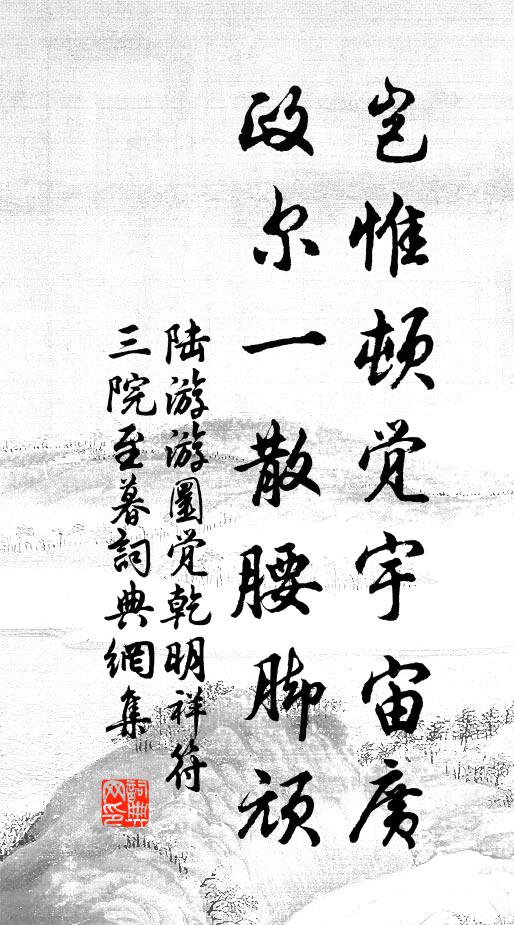 岂惟顿觉宇宙广
政尔一散腰脚顽
陆游游圆觉乾明祥符
三院至暮詞典網集
詞典
网印